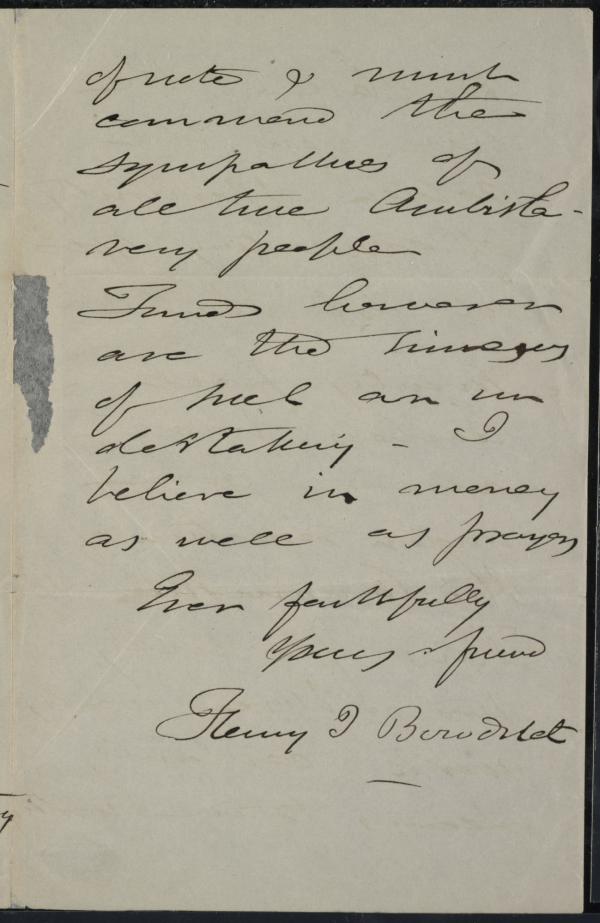 of note & must
command the
sympathies of
all true Antisla-
very people
Funds however
are the sinews
of such an un
dertaking - I
believe in money
as well as prayer
Ever faithfully
Yours & friend
Henry I Bowditch